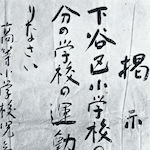 掲示
下谷区小学校の
分の学校の運動
りなさい
高等小学校児